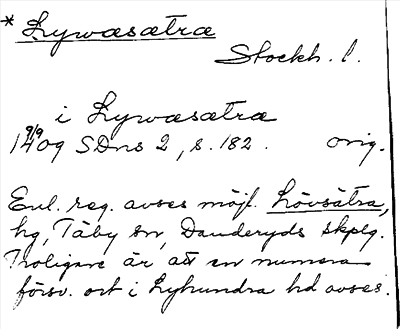 * Lywæsætra
Stockh. l.
i Lywæsætra
9/9
1409 SDns 2, s. 182. orig.
Enl. reg. avses möjl. Lövsätra,
hg, Täby sn, Danderyds skplg.
Troligare är att en numera
försv. ort i Lyhundra hd avses.